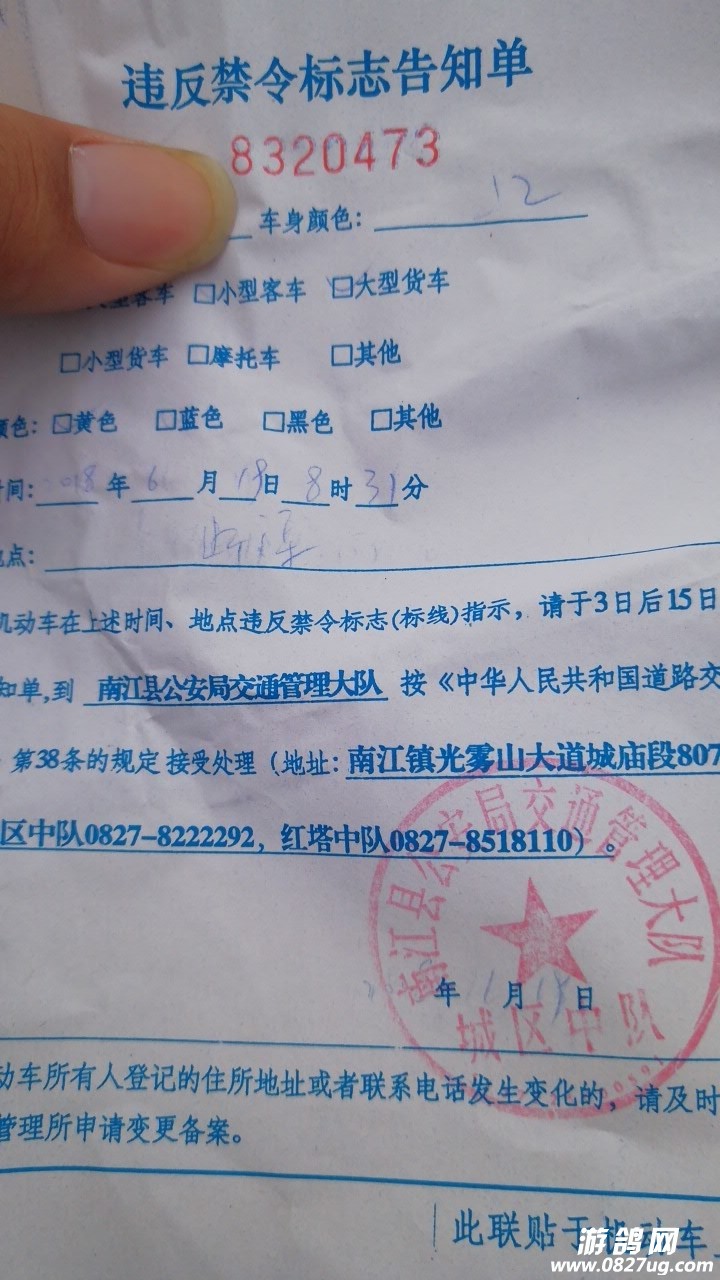 违反禁令标志告知单
8320473
车身颜色: 12
大型客车 □小型客车 □大型货车
□小型货车 □摩托车 □其他
颜色: ☑黄色 □蓝色 □黑色 □其他
时间: 018 年 6 月 19 日 8 时 31 分
地点:
机动车在上述时间、地点违反禁令标志(标线)指示，请于3日后15日
知单,到 南江县公安局交通管理大队 按《中华人民共和国道路交
第38条的规定 接受处理（地址: 南江镇光雾山大道城庙段807
区中队0827-8222292，红塔中队0827-8518110）。
南江县公安局交通管理大队
年 月 日
城区中队
动车所有人登记的住所地址或者联系电话发生变化的，请及时
管理所申请变更备案。
此联贴于机动车
游鸽网
www.0827ug.com